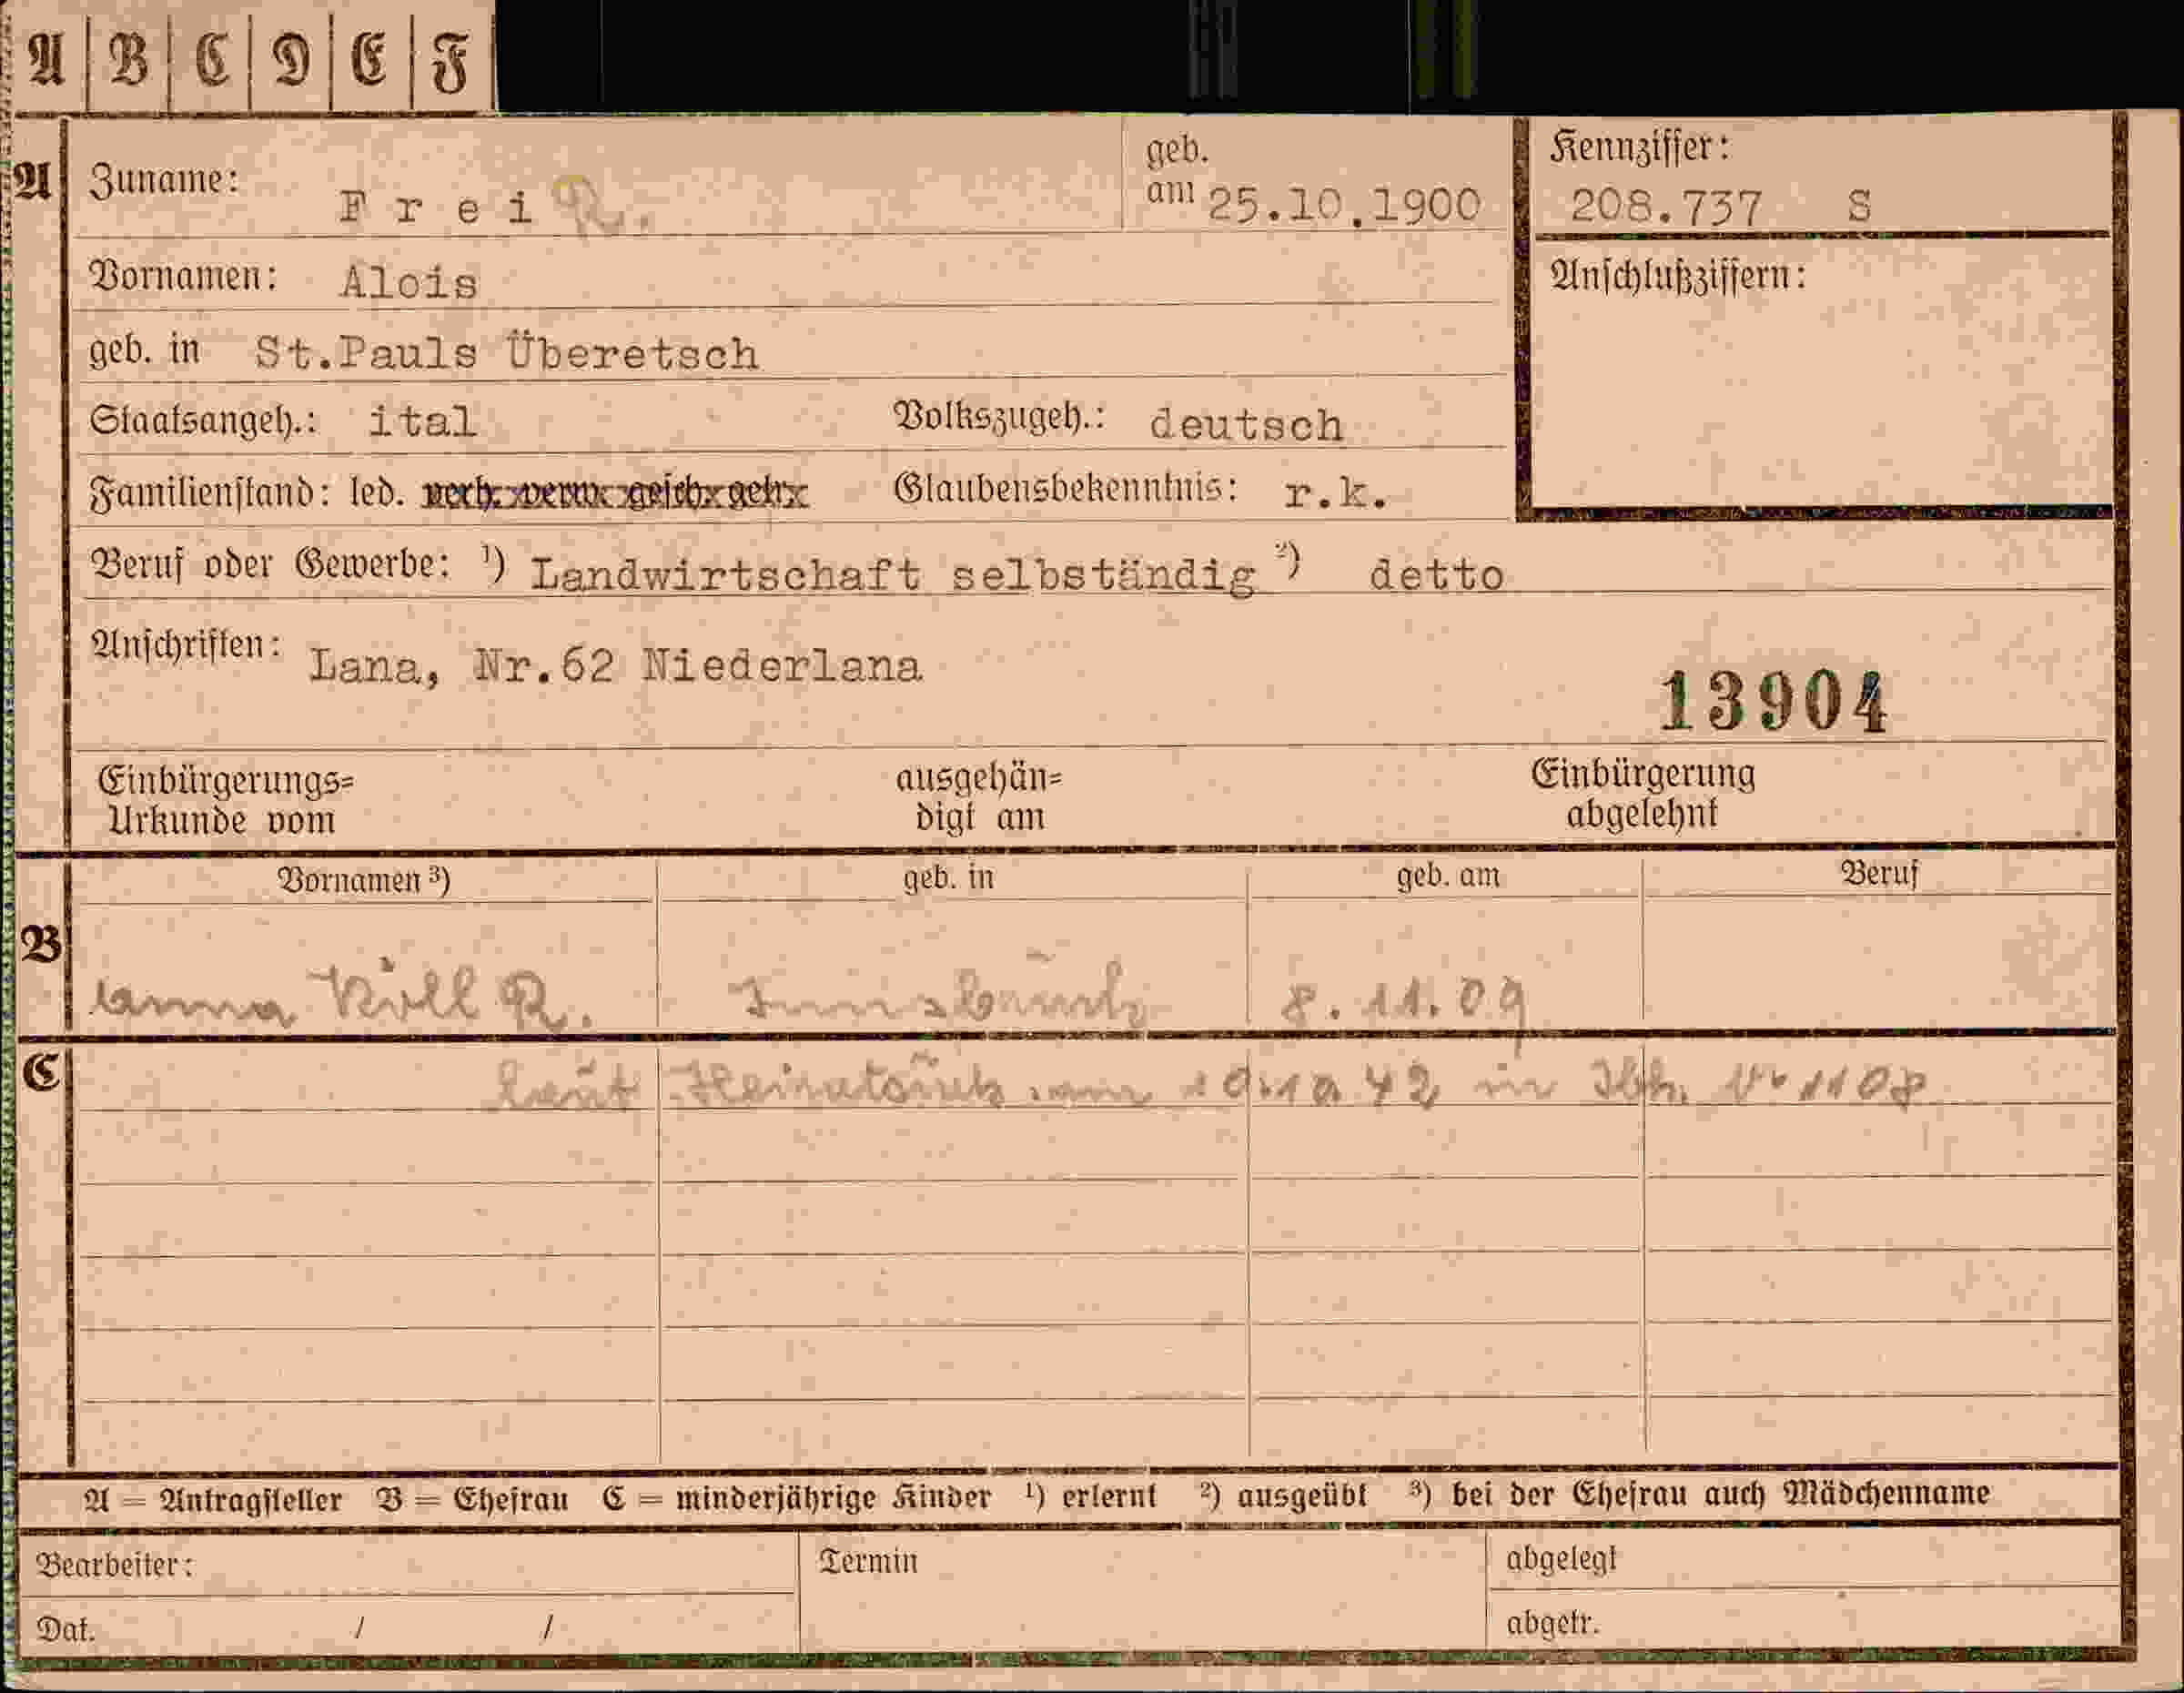 A B C D E F
A Zuname: F r e i R. geb. am 25.10.1900 Kennziffer: 208.737 S
Vornamen: Alois Anschlußziffern:
geb. in St.Pauls Überetsch
Staatsangeh.: ital Volkszugeh.: deutsch
Familienstand: led. verh. verw. gesch. getr. Glaubensbekenntnis: r.k.
Beruf oder Gewerbe: ¹) Landwirtschaft selbständig ²) detto
Anschriften: Lana, Nr.62 Niederlana
13904
Einbürgerungs= ausgehän= Einbürgerung
Urkunde vom digt am abgelehnt
Vornamen ³) geb. in geb. am Beruf
B Anna Köll R. Innsbruck 8.11.09
C laut am 42 in Ibk.
A = Antragsteller B = Ehefrau C = minderjährige Kinder ¹) erlernt ²) ausgeübt ³) bei der Ehefrau auch Mädchenname
Bearbeiter: Termin abgelegt
Dat. / / abgetr.